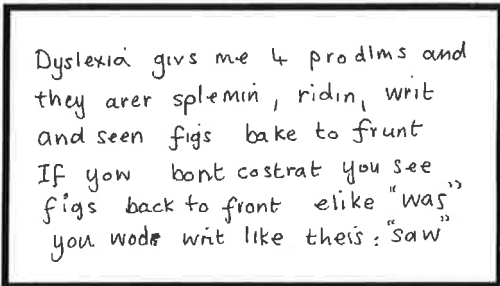 Dyslexia givs me 4 prodlms and
they arer splemin, ridin, writ
and seen figs bake to frunt
If yow bont costrat you see
figs back to front elike "was"
you wode writ like theis: "saw"